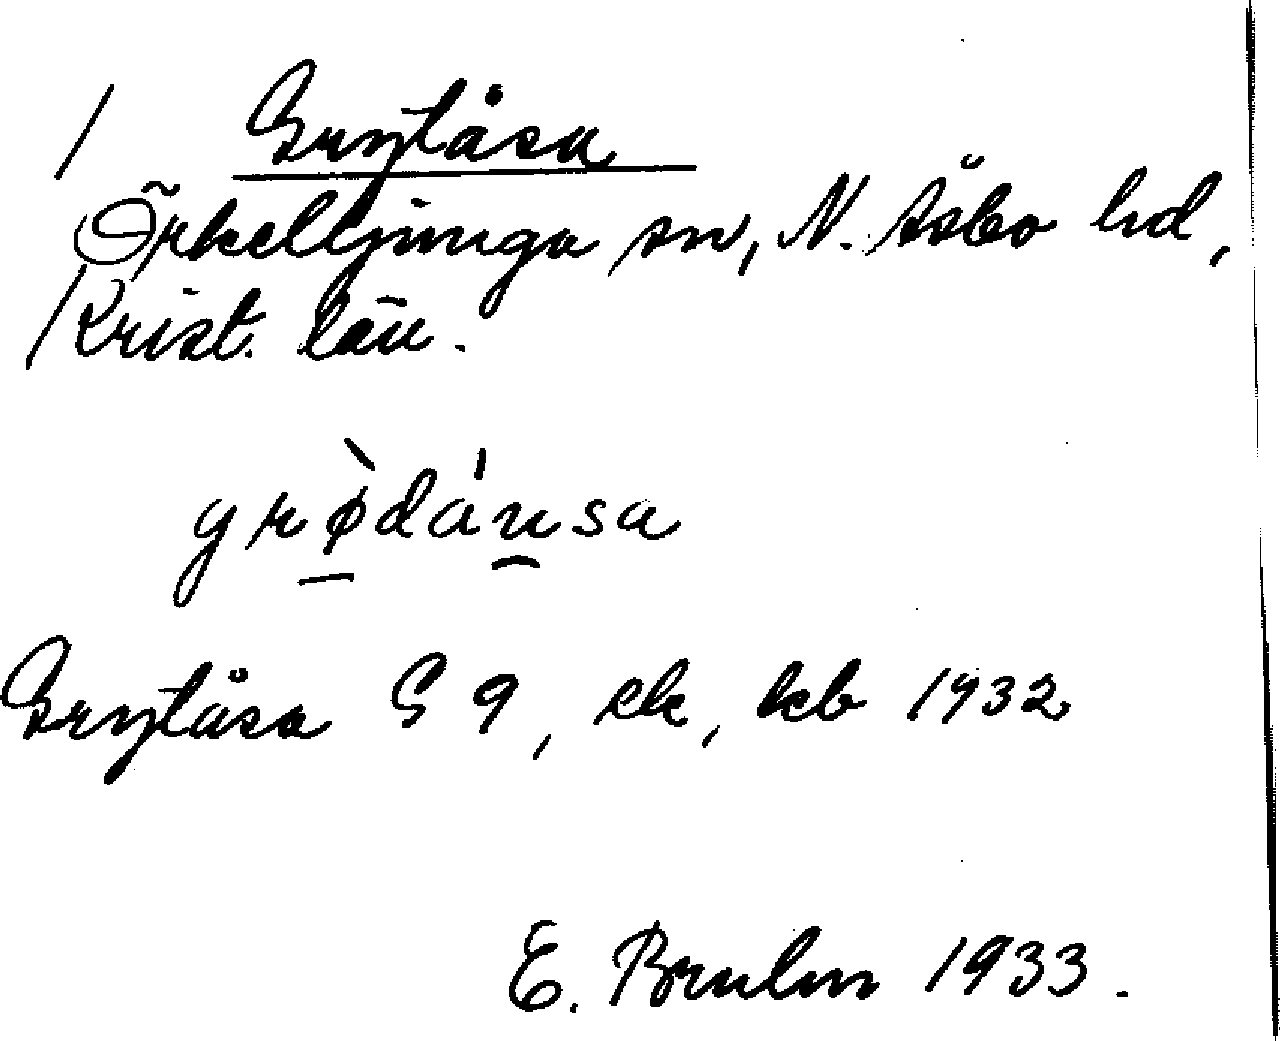 Grytåsa
Örkelljunga sn, N. Åsbo hd,
Krist. län.
grø̀dåusa
Grytåsa S 9, ek, kb 1932
E. Bruhn 1933.